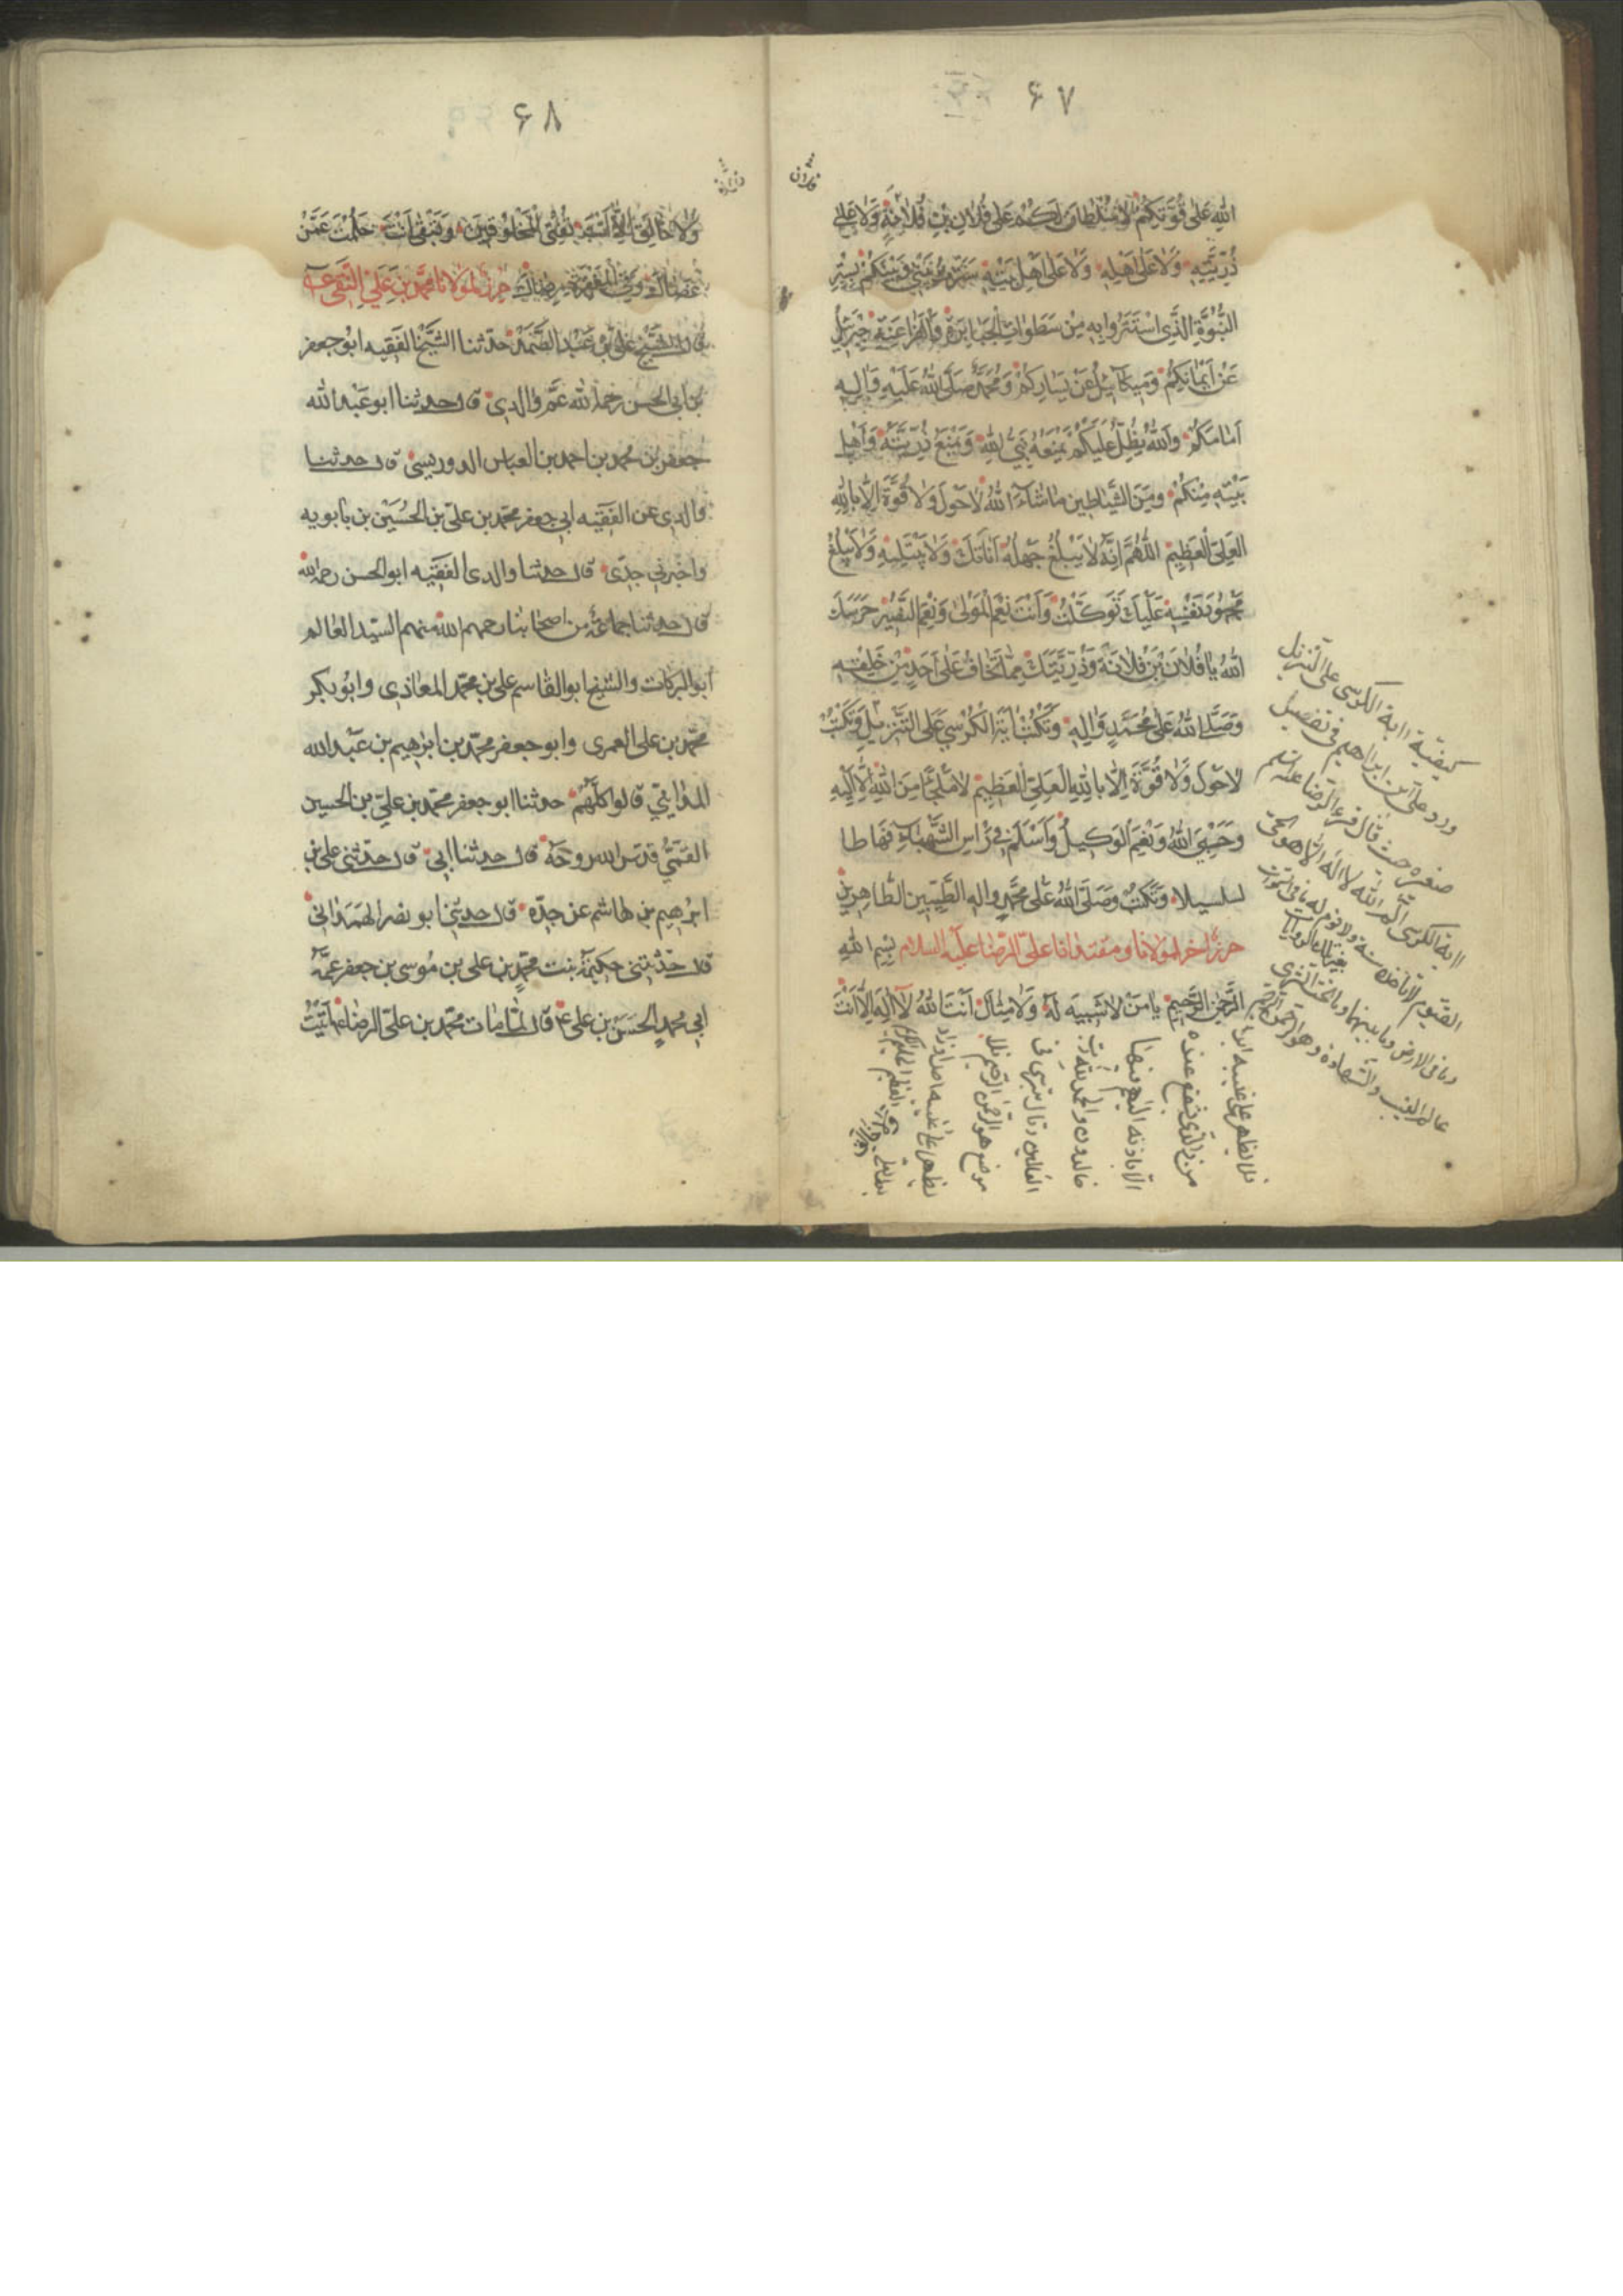 ۶۷
الله على قُوَّتِكُمْ لا سُلْطانَ لَكُمْ عَلى فُلانِ بْنِ فُلانَةٍ وَلا عَلى
ذُرِّيَّتِهِ وَلا عَلى اَهْلِهِ وَلا عَلى اَهْلِ بَيْتِهِ سَتَرْتُ بَيْنَهُ وَبَيْنَكُمْ بِسِتْرِ
النُّبُوَّةِ الَّذِى اسْتَتَرُوا بِهِ مِنْ سَطَواتِ الْجَبابِرَةِ وَالْفَراعِنَةِ جَبْرَئيلُ
عَنْ اَيْمانِكُمْ وَميكآئيلُ عَنْ يَسارِكُمْ وَمُحَمَّدٌ صَلَّى اللهُ عَلَيْهِ وَالِهِ
اَمامَكُمْ وَاللهُ يُظِلُّ عَلَيْكُمْ بِمَنْعِهِ نَبِىَّ اللهِ وَبِمَنْعِ ذُرِّيَّتِهِ وَاَهْلِ
بَيْتِهِ مِنْكُمْ وَمِنَ الشَّياطينِ ماشآءَ اللهُ لا حَوْلَ وَلا قُوَّةَ اِلّا بِاللهِ
العَلِىِّ الْعَظيمِ اللّهُمَّ اِنَّهُ لا يَبْلُغُ جَهْلُهُ اَناتَكَ وَلا يَبْتَليهِ وَلا يَبْلُغُ
مَجْهُودَ نَفْسِهِ عَلَيْكَ تَوَكَّلْتُ وَاَنْتَ نِعْمَ الْمَوْلى وَنِعْمَ النَّصيرُ حَرَسَكَ
اللهُ يا فُلانَ بْنَ فُلانَةَ وَذُرِّيَّتَكَ مِمّا تَخافُ عَلى اَحَدٍ مِنْ خَلْقِهِ
وَصَلَّى اللهُ عَلى مُحَمَّدٍ وَالِهِ وَتَكْتُبُ ايَةَ الْكُرْسِىِّ عَلَى التَّنْزيلِ وَتَكْتُبُ
لا حَوْلَ وَلا قُوَّةَ اِلّا بِاللهِ العَلِىِّ الْعَظيمِ لا مَلْجَأَ مِنَ اللهِ اِلّا اِلَيْهِ
وَحَسْبِىَ اللهُ وَنِعْمَ الْوَكيلُ وَاَسْلَمَ فى رَأْسِ الشَّهْباءِ فيها طا
لسلسبيلا وَتَكْتُبُ وَصَلَّى اللهُ عَلى مُحَمَّدٍ وَالِهِ الطَّيِّبينَ الطّاهِرينَ
حرز اخر لمولانا ومقتدانا على الرضا عليه السلام بسم الله
الرَّحْمنِ الرَّحيمِ يا مَنْ لا شَبيهَ لَهُ وَلا مِثالَ اَنْتَ اللهُ لا اِلهَ اِلّا اَنْتَ
كيفية اية الكرسى على التنزيل
ورد على بن ابراهيم فى تفسير
اية الكرسى الم الله لا اله الا هو الحى
القيوم لا تأخذه سنة ولا نوم له ما فى السموات
وما فى الارض وما بينهما وما تحت الثرى
عالم الغيب والشهادة وهو الرحمن الرحيم
فلا يظهر على غيبه احدا
من ذا الذى يشفع عنده
خالدون والحمد لله رب
العالمين
۶۸
وَلا خالِقَ اِلّا اَنْتَ تُفْنِى الْمَخْلُوقينَ وَتَبْقى اَنْتَ حَلُمْتَ عَمَّنْ
عَصاكَ وَفِى الْمَغْفِرَةِ رِضاكَ حرز لمولانا محمد بن على التقى ع
قال الشيخ على بن عبد الصمد حدثنا الشيخ الفقيه ابو جعفر
بن ابى الحسن رحمه الله عم والدى قال حدثنا ابو عبد الله
جعفر بن محمد بن احمد بن العباس الدوريستى قال حدثنا
والدى عن الفقيه ابى جعفر محمد بن على بن الحسين بن بابويه
واخبرنى جدى قال حدثنا والدى الفقيه ابو الحسن رحمه الله
قال حدثنا جماعة من اصحابنا رحمهم الله منهم السيد العالم
ابو البركات والشيخ ابو القاسم على بن محمد المعاذى وابو بكر
محمد بن على العمرى وابو جعفر محمد بن ابراهيم بن عبد الله
المداينى قالوا كلهم حدثنا ابو جعفر محمد بن على بن الحسين
القمى قدس الله روحه قال حدثنا ابى قال حدثنى على بن
ابرهيم بن هاشم عن جده قال حدثنى ابو نصر الهمدانى
قال حدثتنى حكيمة بنت محمد بن على بن موسى بن جعفر عمة
ابى محمد الحسن بن على ع قال لما مات محمد بن على الرضا ع اتيت